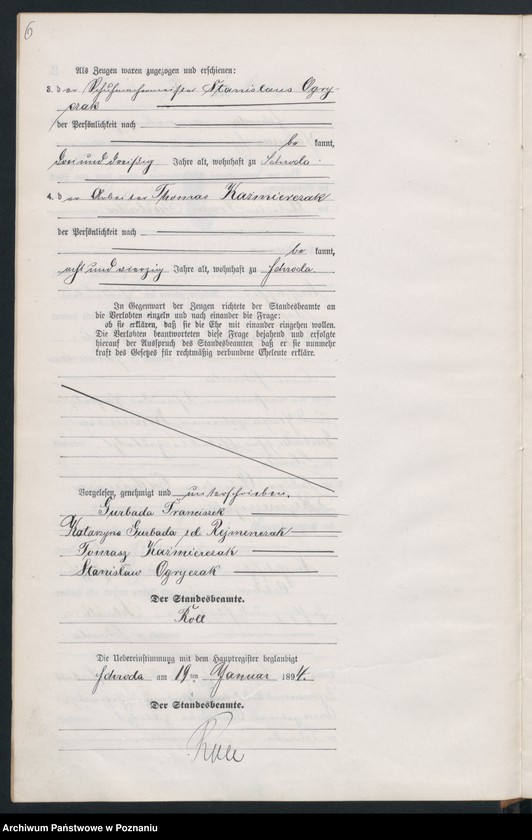 6
Als Zeugen waren zugezogen und erschienen:
3. der Schuhmachermeister Stanislaus Ogry-
czak
der Persönlichkeit nach
be kannt,
drei und dreißig Jahre alt, wohnhaft zu Schroda.
4. der Arbeiter Thomas Kaźmierczak
der Persönlichkeit nach
be kannt,
acht und vierzig Jahre alt, wohnhaft zu Schroda.
In Gegenwart der Zeugen richtete der Standesbeamte an
die Verlobten einzeln und nach einander die Frage:
ob sie erklären, daß sie die Ehe mit einander eingehen wollen.
Die Verlobten beantworteten diese Frage bejahend und erfolgte
hierauf der Ausspruch des Standesbeamten, daß er sie nunmehr
kraft des Gesetzes für rechtmäßig verbundene Eheleute erkläre.
Vorgelesen, genehmigt und unterschrieben.
Gurbada Franciszek
Katarzyna Gurbada zd Rejmenczak
Tomasz Kaźmierczak
Stanisław Ogryczak
Der Standesbeamte.
Roll
Die Uebereinstimmung mit dem Hauptregister beglaubigt
Schroda am 19ten Januar 1894.
Der Standesbeamte.
Roll
Archiwum Państwowe w Poznaniu